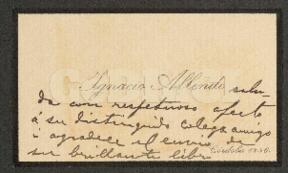 Ignacio Allende salu-
da con respetuoso afecto
á su distinguido colega amigo
i agradece el envio de
su brillante libro
Córdoba